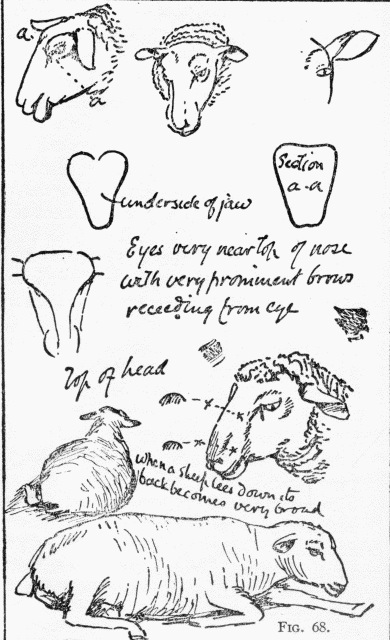 a
a
underside of jaw
Section
a-a
Eyes very near top of nose
with very prominent brows
receeding from eye
Top of head
when a sheep lies down its
back becomes very broad
FIG. 68.